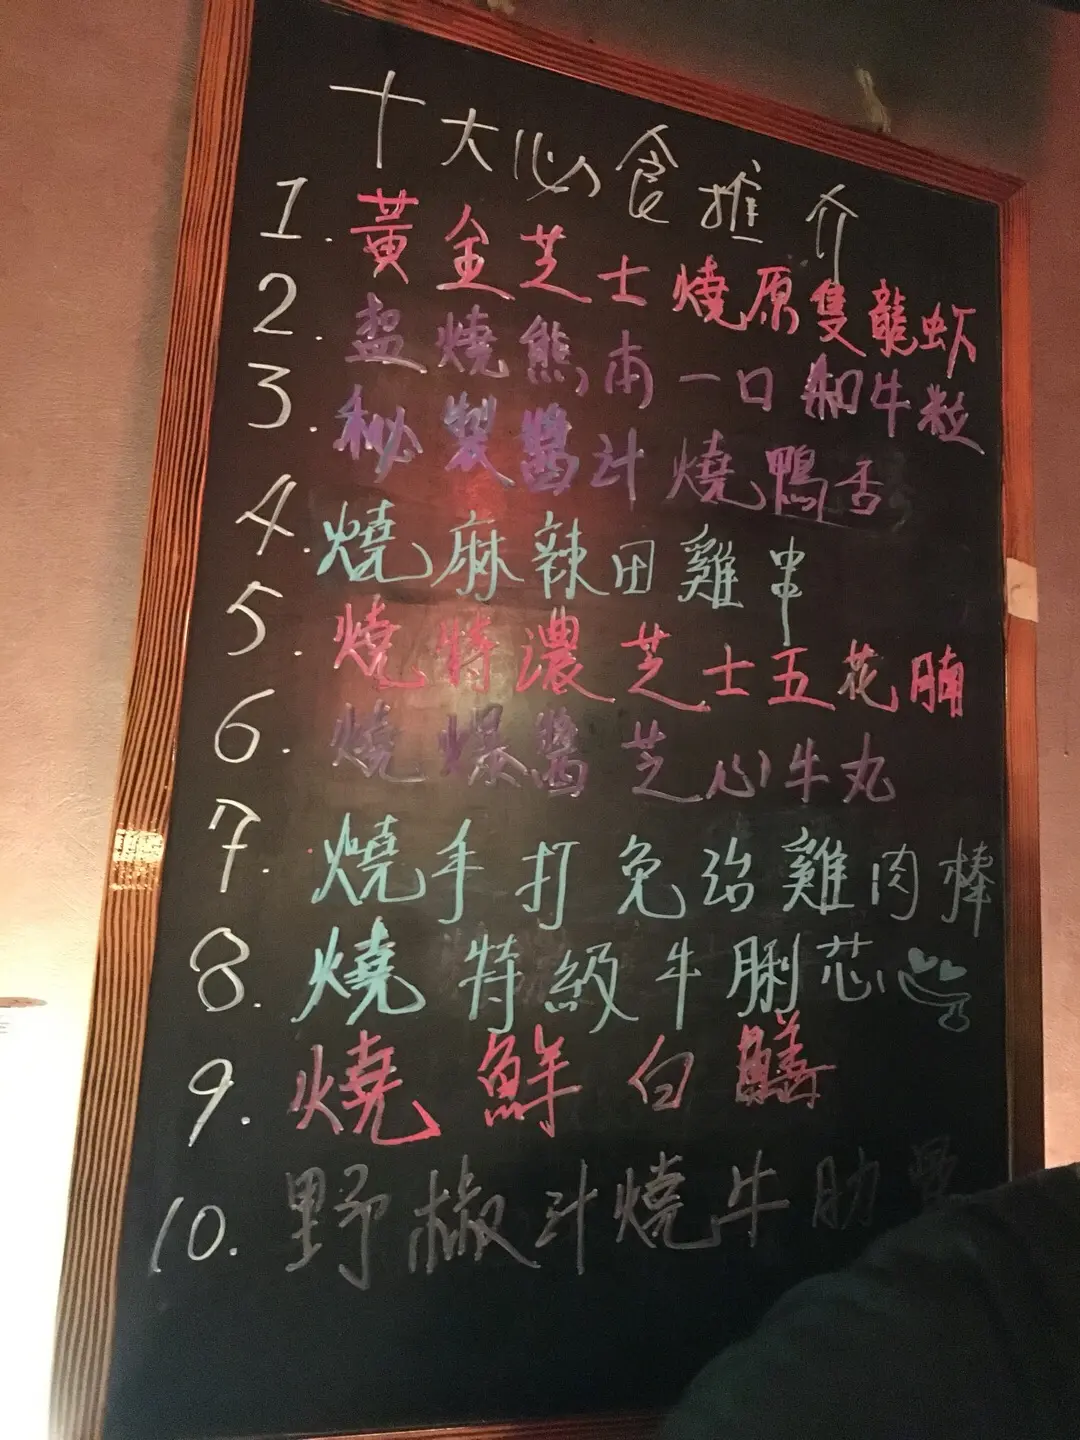 十大必食推介
1. 黃金芝士燒原隻龍蚧
2. 盐燒熊本一口和牛粒
3. 秘製醬汁燒鴨舌
4. 燒麻辣田雞串
5. 燒特濃芝士五花腩
6. 燒爆醬芝心牛丸
7. 燒手打免治雞肉棒
8. 燒特級牛脷芯
9. 燒鮮白鱔
10. 野椒汁燒牛肋骨